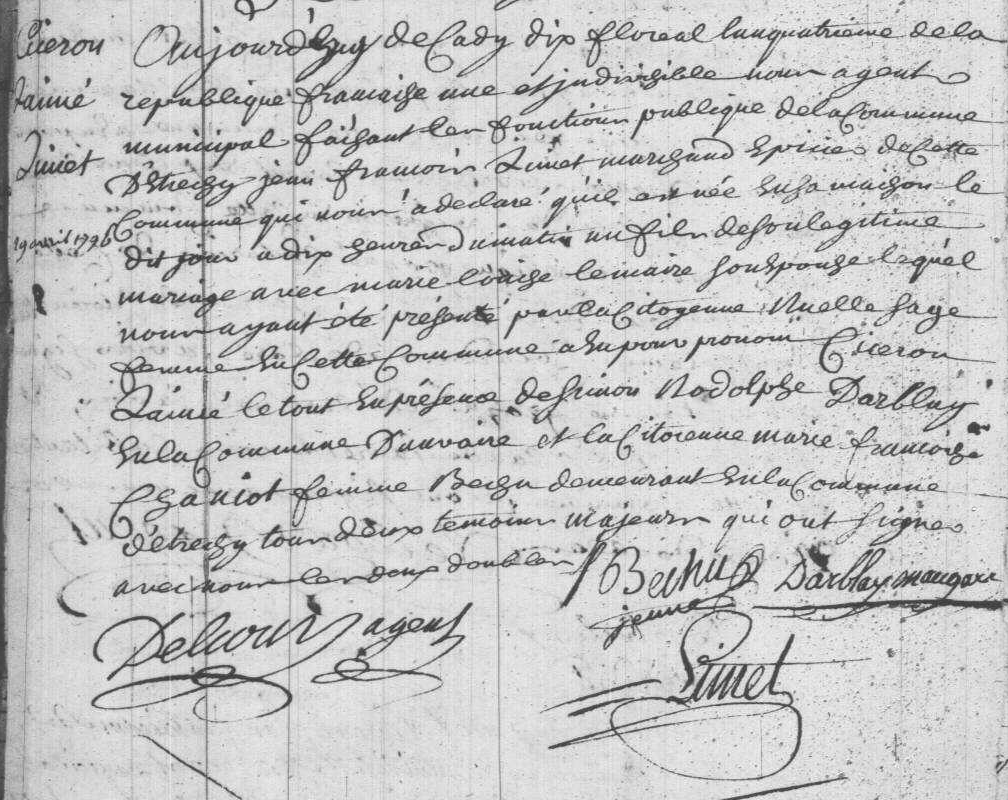 Ciceron
Aimé
Limet
19 avril 1796
Aujourd'huy decady dix floreal lan quatrieme de la
republique francaise une et indivisible nous agent
municipal faisant les fonctions publique de la Commune
D'Etrechy jean francois Limet marchand Epicier de Cette
Commune qui nous a declaré qu'il est née En sa maison le
dit jour a dix heures du matin un fils de son legitime
mariage avec marie louise lemaire son Epouse lequel
nous ayant été présenté par la Citoyenne Ruelle sage
femme En Cette Commune a Eu pour pronom Ciceron
Aimé le tout En présence de Simon Rodolphe Darblay
En la Commune D'auvaire et la Citoienne marie francoise
Chaniot femme Bechu demeurant En la Commune
d'étrechy tous deux temoins majeurs qui ont signe
avec nous les deux doubles
f Bechu Darblay
jeune
Delcour agent
Limet